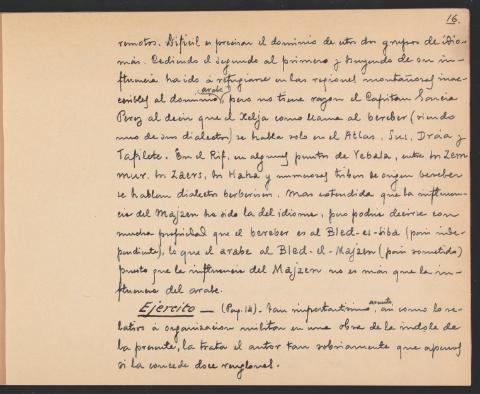 16.
remotos. Difícil es precisar el dominio de estos dos grupos de idio-
mas. Cediendo el segundo al primero y huyendo de su in-
fluencia ha ido á refugiarse en las regiones montañosas inac-
cesibles al dominio árabe, pero no tiene razon el Capitan García
Perez al decir que el Xelja como llama al bereber (siendo
uno de sus dialectos) se habla solo en el Atlas, Sus, Dráa y
Tafilete. En el Rif, en algunos puntos de Yebala, entre los Zem
mur, los Záers, los Haha y numerosas tribus de origen bereber
se hablan dialectos berberiscos. Mas extendida que la influen-
cia del Majzen ha sido la del idioma, pero podria decirse con
mucha propiedad que el bereber es al Bled-es-Siba (pais inde-
pendiente), lo que el arabe al Bled-el-Majzen (pais sometido)
puesto que la influencia del Majzen no es más que la in-
fluencia del arabe.
Ejercito — (Pag. 14). Tan importantísimo asunto, asi como lo re-
lativo á organizacion militar en una obra de la indole de
la presente, la trata el autor tan sobriamente que apenas
si la concede doce renglones.